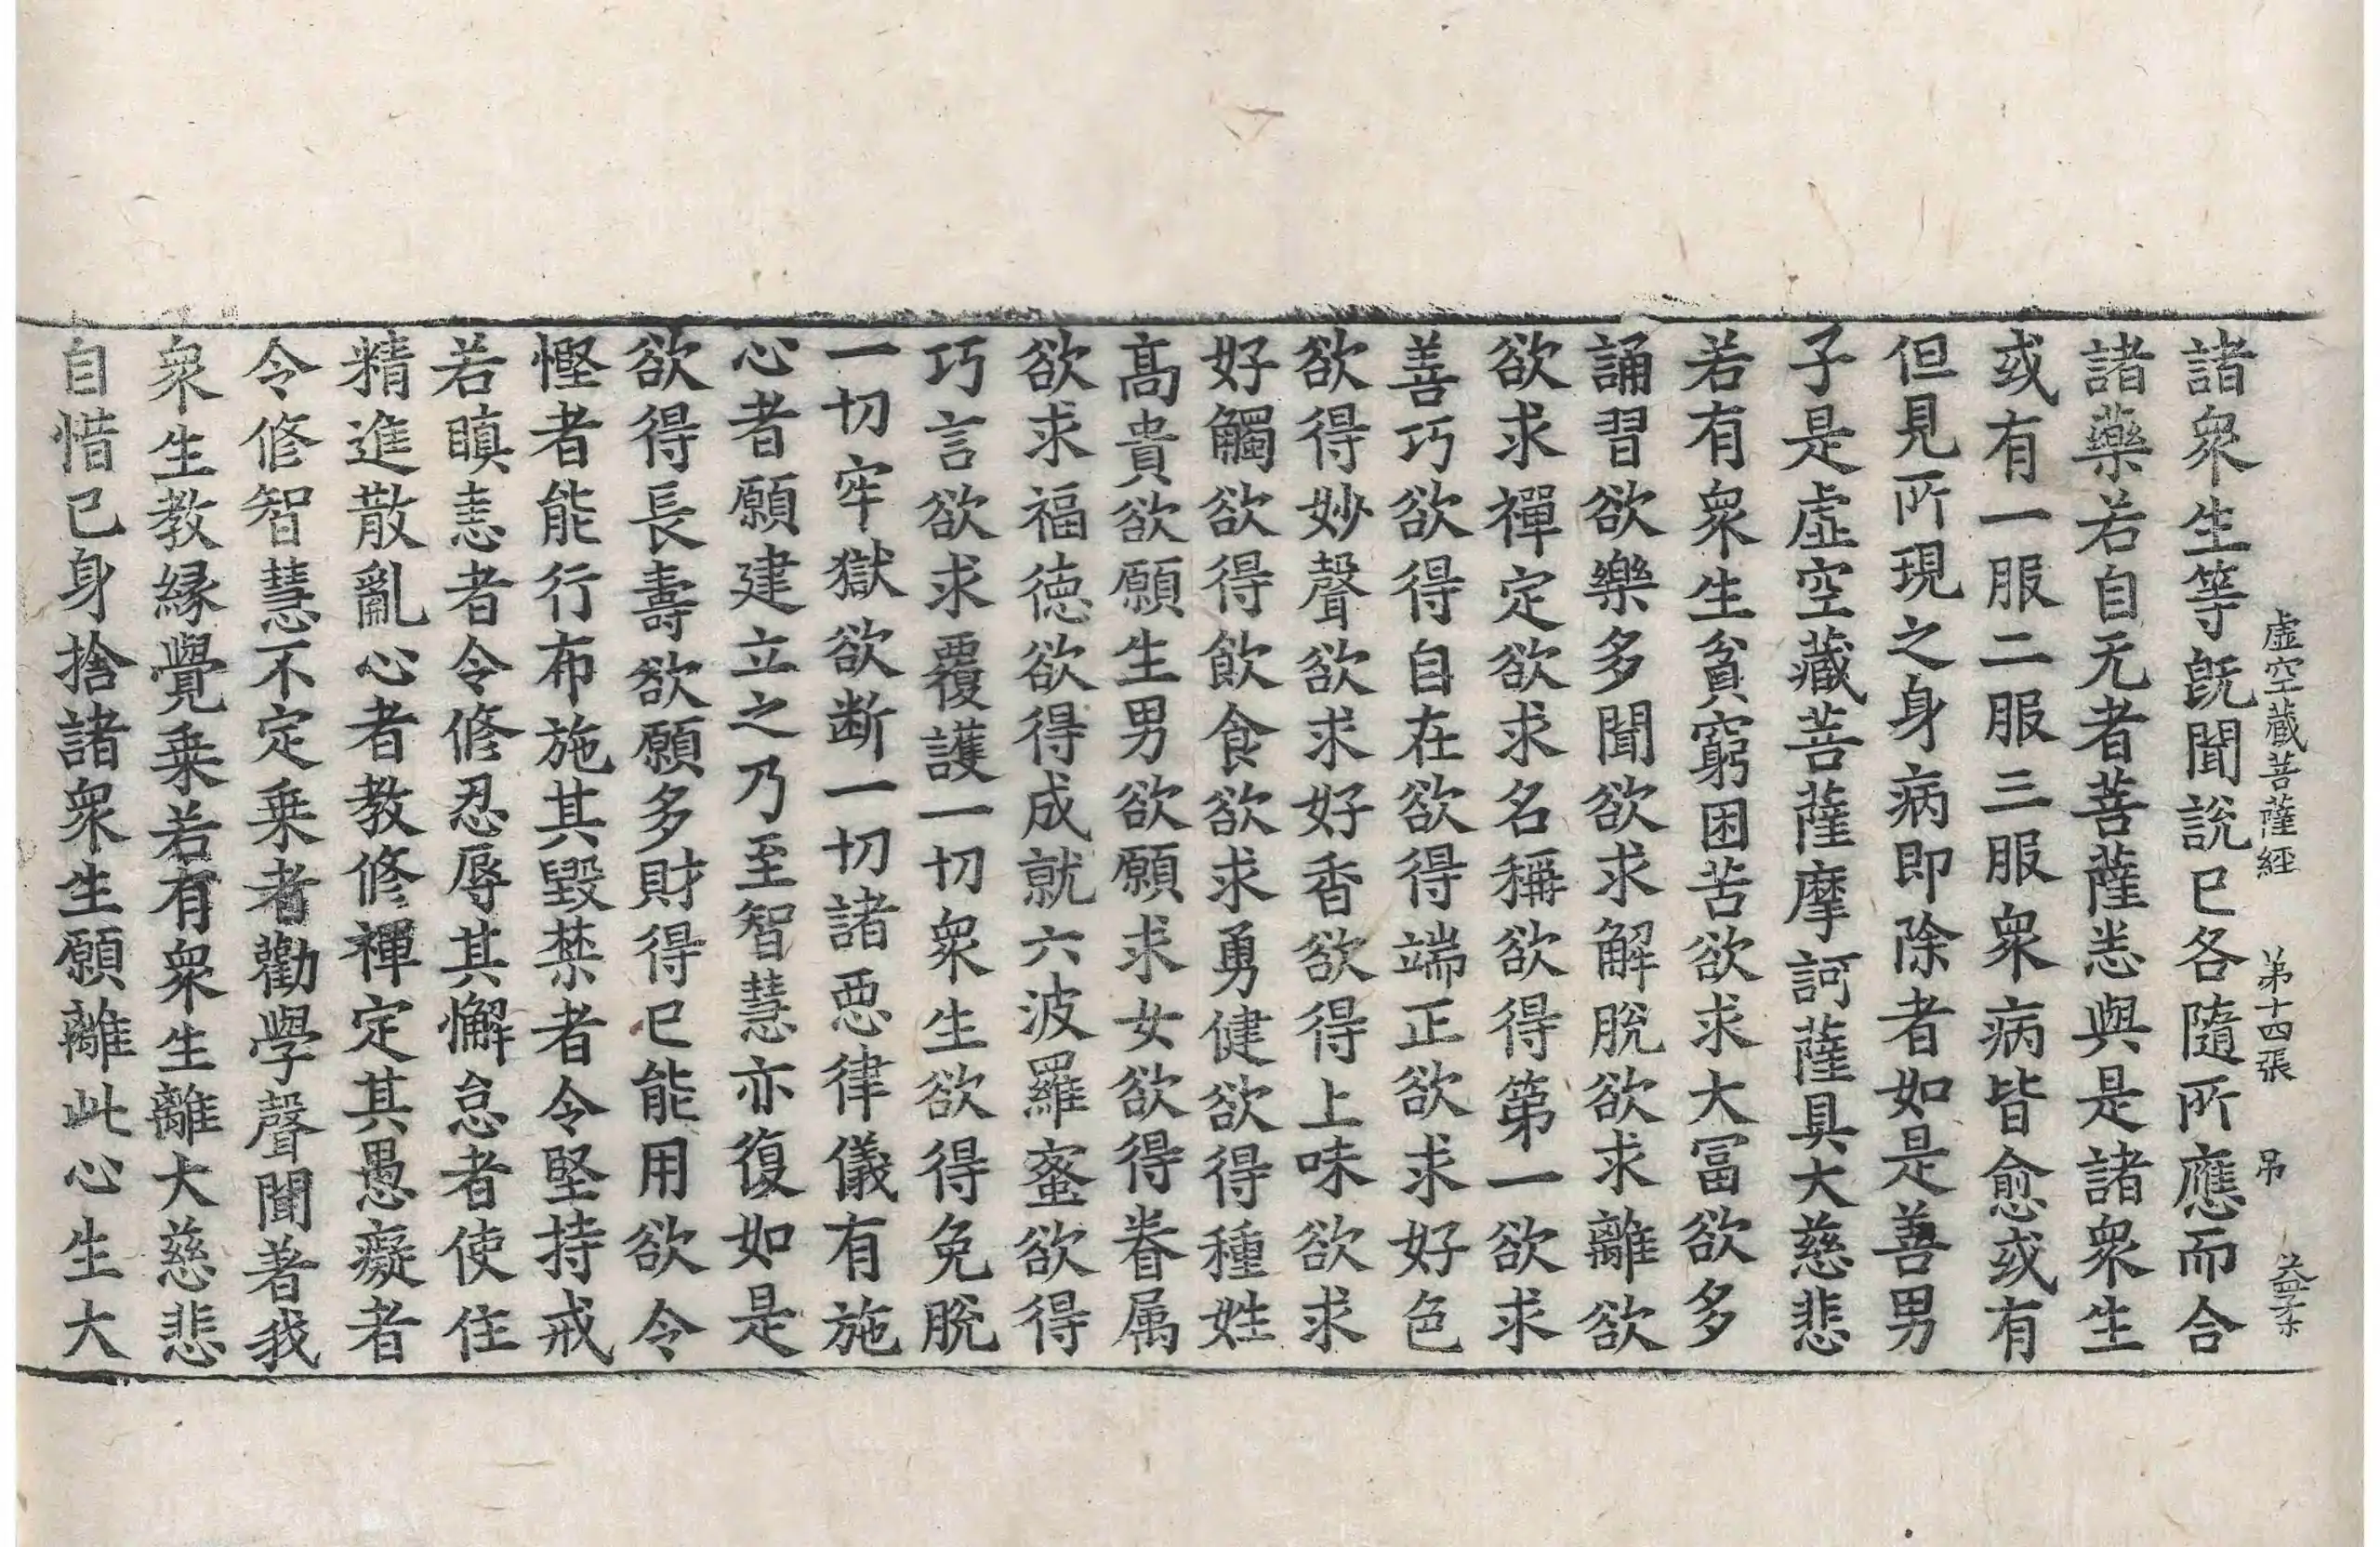 虛空藏菩薩經　第十四張　吊　益柔
諸衆生等旣聞說已各隨所應而合
諸藥若自无者菩薩悉與是諸衆生
或有一服二服三服衆病皆愈或有
但見所現之身病即除者如是善男
子是虛空藏菩薩摩訶薩具大慈悲
若有衆生貧窮困苦欲求大冨欲多
誦習欲樂多聞欲求解脫欲求離欲
欲求禪定欲求名稱欲得第一欲求
善巧欲得自在欲得端正欲求好色
欲得妙聲欲求好香欲得上味欲求
好觸欲得飲食欲求勇健欲得種姓
髙貴欲願生男欲願求女欲得眷属
欲求福德欲得成就六波羅蜜欲得
巧言欲求覆護一切衆生欲得免脫
一切牢獄欲断一切諸惡律儀有施
心者願建立之乃至智慧亦復如是
欲得長壽欲願多財得已能用欲令
慳者能行布施其毀禁者令堅持戒
若瞋恚者令修忍辱其懈怠者使住
精進散亂心者教修禪定其愚癡者
令修智慧不定乗者勸學聲聞著我
衆生教緣覺乗若有衆生離大慈悲
自惜已身捨諸衆生願離此心生大